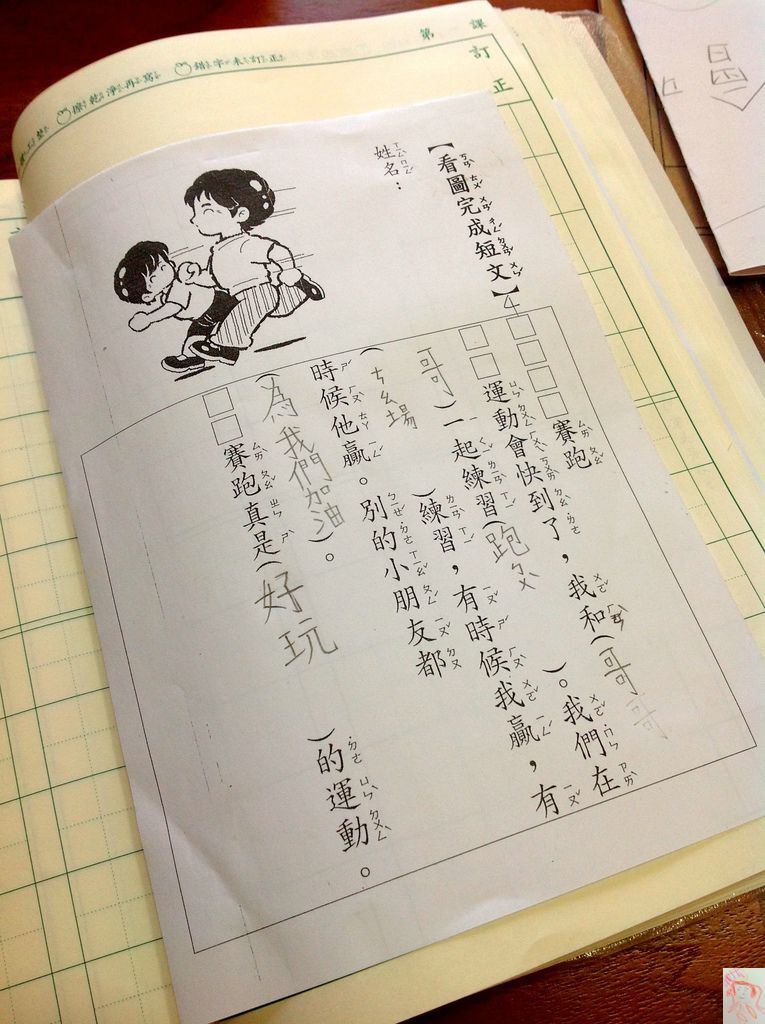 第 課
訂正
錯字來訂正
擦乾淨再寫
【看圖完成短文】4
姓名：
賽跑
運動會快到了，我和(哥哥
哥)一起練習(跑ㄅㄨˋ)。我們在
(ㄘㄠ場)練習，有時候我贏，有
時候他贏。別的小朋友都
(為我們加油)。
賽跑真是(好玩)的運動。